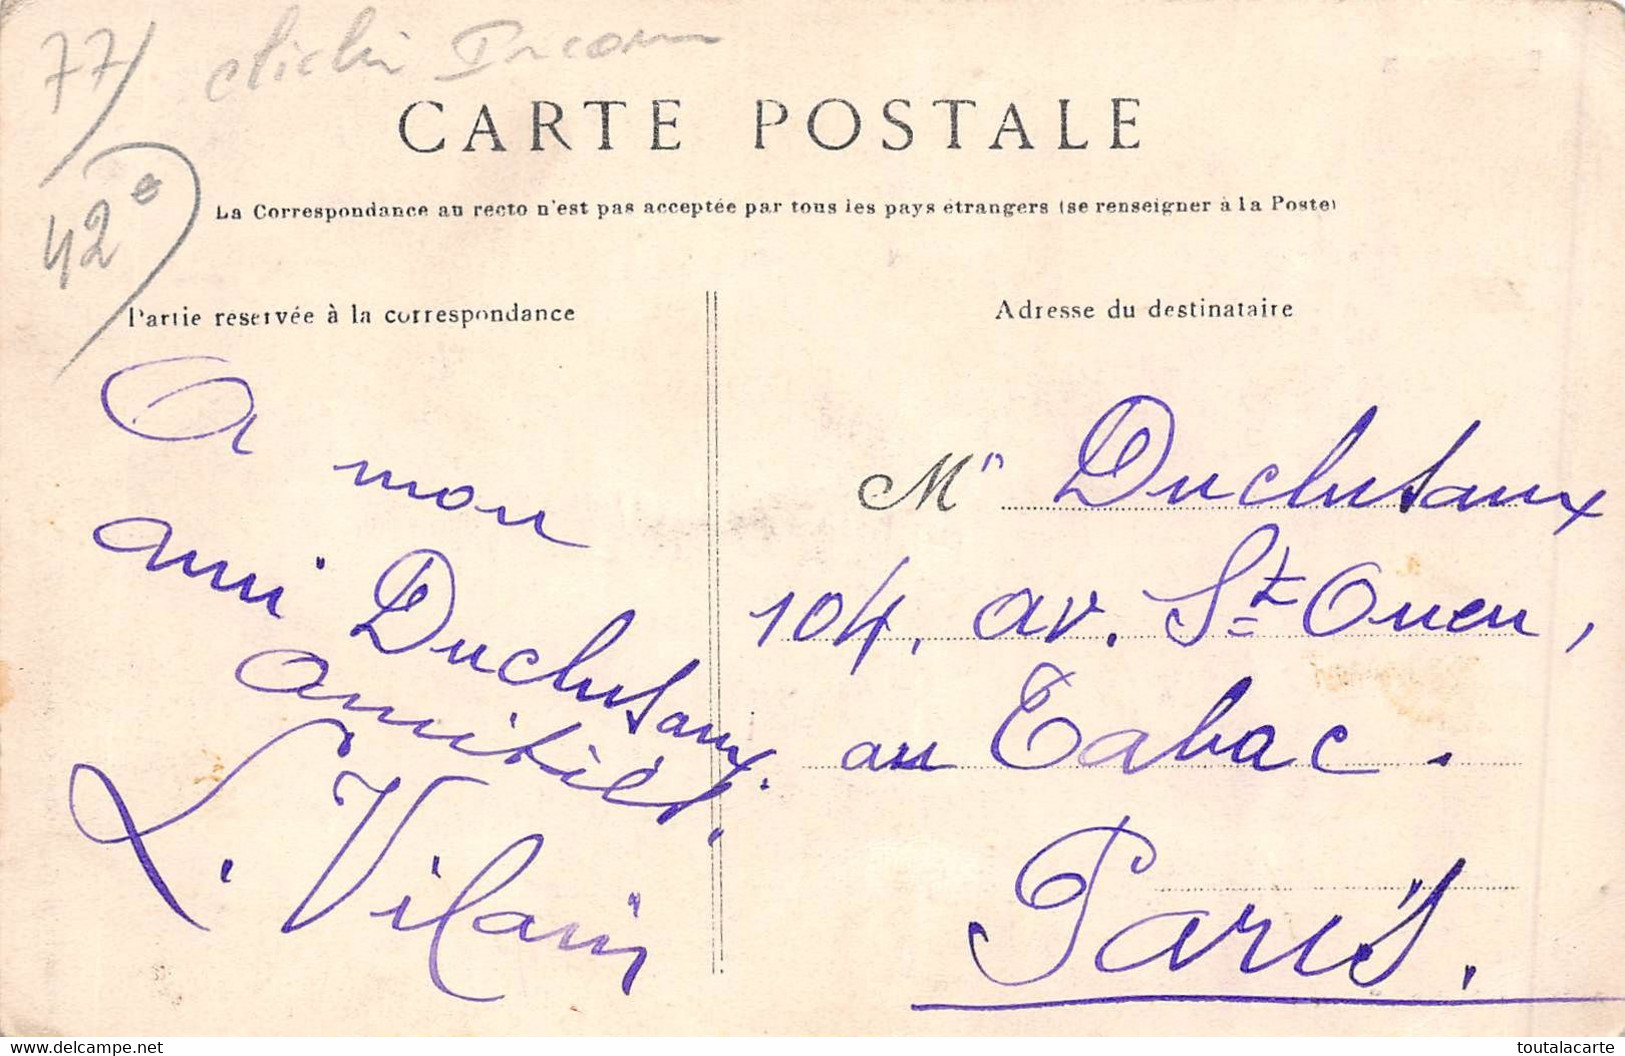 77/
cliché
42
CARTE POSTALE
La Correspondance au recto n'est pas acceptée par tous les pays étrangers (se renseigner à la Poste)
Partie réservée à la correspondance
Adresse du destinataire
A mon
ami Duclusaux.
amitiés.
L. Vilain
Mr Duclusaux
104, av. St Ouen,
au Tabac.
Paris.
www.delcampe.net
toutalacarte